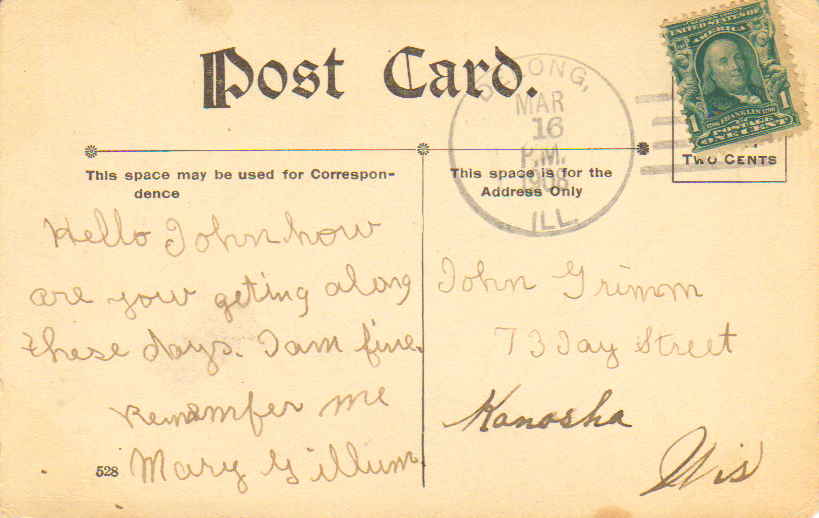 Post Card.
This space may be used for Correspon-
dence
This space is for the
Address Only
DELONG,
MAR
16
P.M.
1908
ILL.
UNITED STATES OF
AMERICA
FRANKLIN
1 1
POSTAGE
ONE CENT
TWO CENTS
Hello John how
are you geting along
these days. I am fine.
Rememfer me
Mary Gillum
528
John Grimm
73 Jay Street
Kanosha
Wis